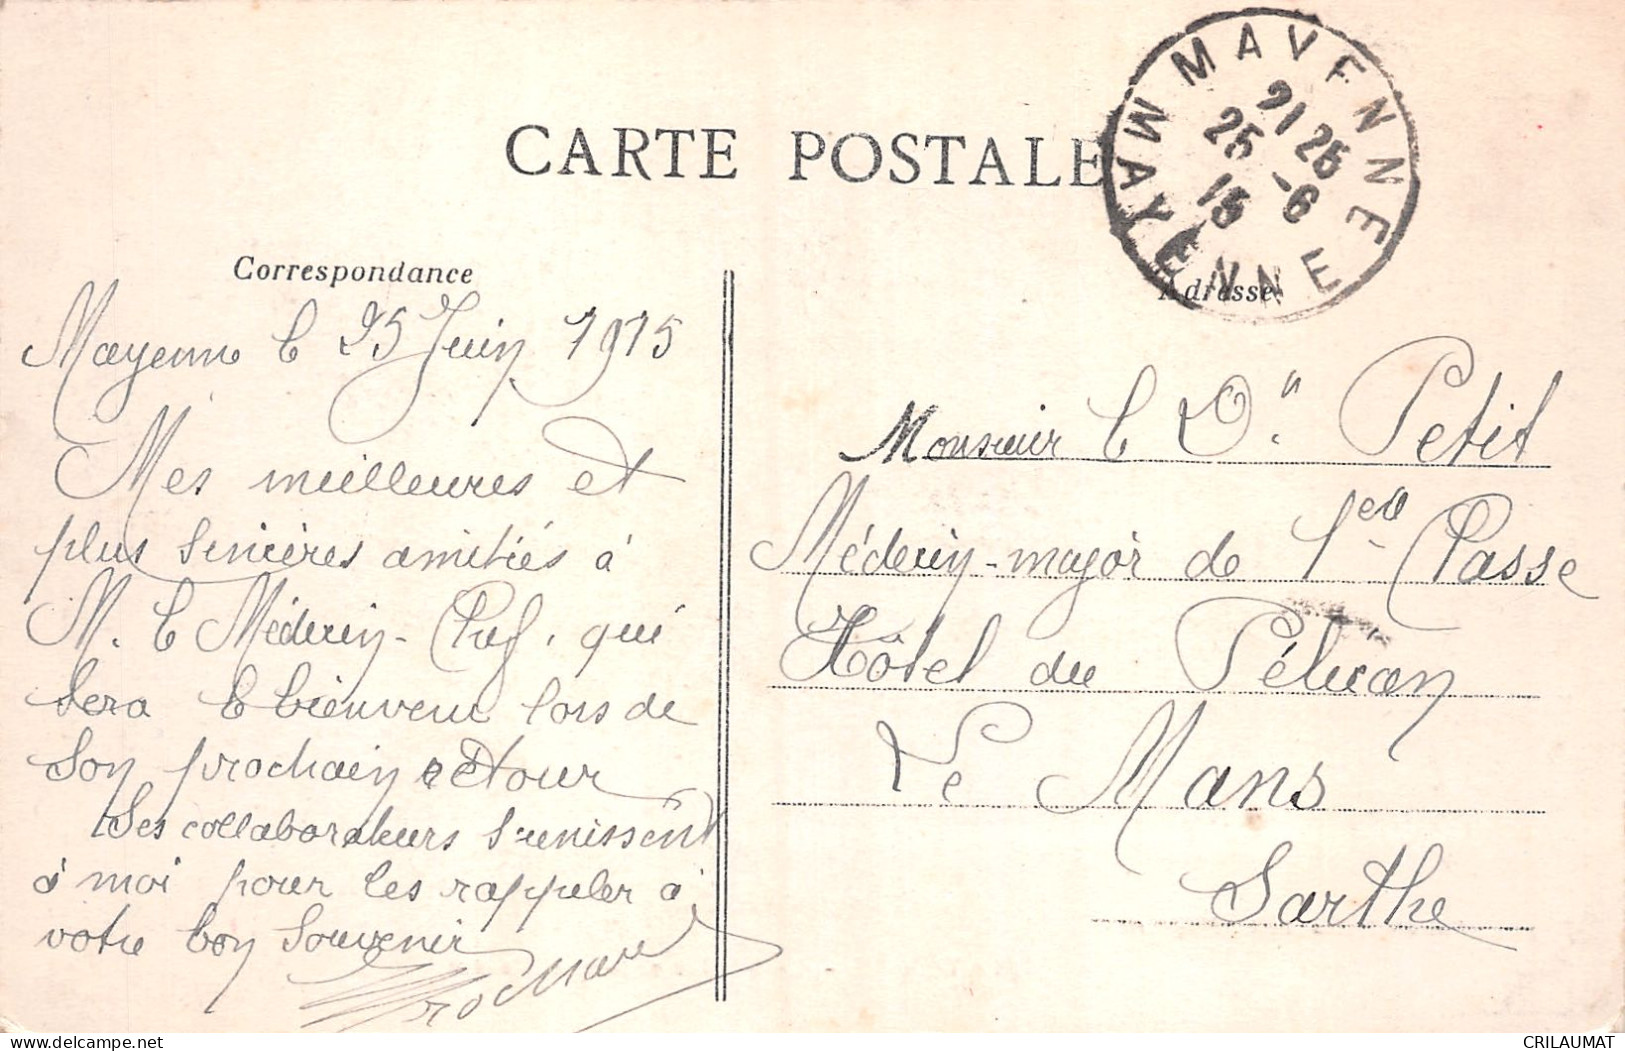 CARTE POSTALE
MAYENNE
21 25
25 -6
15
MAYENNE
Correspondance
Adresse
Mayenne le 25 Juin 1915
Mes meilleures et
plus sincères amitiés à
M. le Médecin-Chef, qui
sera le bienvenu lors de
son prochain retour
Ses collaborateurs s'unissent
à moi pour les rappeler à
votre bon souvenir
Monsieur le Dr. Petit
Médecin-major de 1ere Classe
Hôtel du Pélican
Le Mans
Sarthe
CRILAUMAT